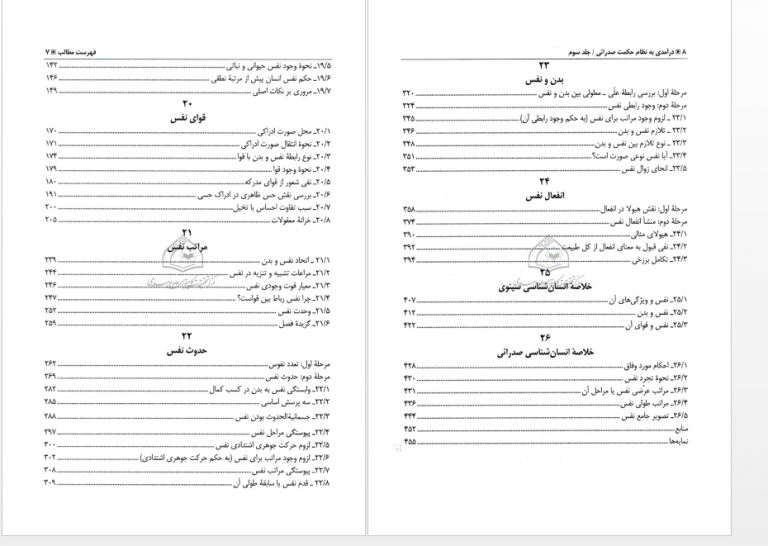 فهرست مطالب ▣ ۷
۱۹/۵ـ نحوة وجود نفس حیوانی و نباتی ........ ۱۴۲
۱۹/۶ـ حکم نفس انسان پیش از مرتبة نطقی ........ ۱۴۶
۱۹/۷ـ مروری بر نکات اصلی ........ ۱۴۹
۲۰
قوای نفس
۲۰/۱ـ محل صورت ادراکی ........ ۱۷۰
۲۰/۲ـ نحوة انتقال صورت ادراکی ........ ۱۷۱
۲۰/۳ـ نوع رابطة نفس و بدن با قوا ........ ۱۷۴
۲۰/۴ـ نحوة وجود قوا ........ ۱۷۹
۲۰/۵ـ نفی شعور از قوای مدرکه ........ ۱۸۰
۲۰/۶ـ بررسی نقش حس ظاهری در ادراک حسی ........ ۱۹۱
۲۰/۷ـ سبب تفاوت احساس با تخیل ........ ۲۰۰
۲۰/۸ـ خزانة معقولات ........ ۲۰۵
۲۱
مراتب نفس
۲۱/۱ـ اتحاد نفس و بدن ........ ۲۳۹
۲۱/۲ـ مراعات تشبیه و تنزیه در نفس ........ ۲۴۴
۲۱/۳ـ معیار قوت وجودی نفس ........ ۲۴۶
۲۱/۴ـ چرا نفس رباط بین قواست؟ ........ ۲۴۷
۲۱/۵ـ وحدت نفس ........ ۲۵۲
۲۱/۶ـ گزیدة فصل ........ ۲۵۹
۲۲
حدوث نفس
مرحلة اول: تعدد نفوس ........ ۲۶۲
مرحلة دوم: حدوث نفس ........ ۲۶۹
۲۲/۱ـ وابستگی نفس به بدن در کسب کمال ........ ۲۸۲
۲۲/۲ـ سه پرسش اساسی ........ ۲۸۵
۲۲/۳ـ جسمانیةالحدوث بودن نفس ........ ۲۸۸
۲۲/۴ـ پیوستگی مراحل نفس ........ ۲۹۷
۲۲/۵ـ لزوم حرکت جوهری اشتدادی نفس ........ ۳۰۰
۲۲/۶ـ لزوم وجود مراتب برای نفس (به حکم حرکت جوهری اشتدادی) ........ ۳۰۲
۲۲/۷ـ پیوستگی مراتب نفس ........ ۳۰۸
۲۲/۸ـ قدم نفس یا سابقة طولی آن ........ ۳۰۹
۸ ▣ درآمدی به نظام حکمت صدرائی / جلد سوم
۲۳
بدن و نفس
مرحلة اول: بررسی رابطة علّی ـ معلولی بین بدن و نفس ........ ۳۲۰
مرحلة دوم: وجود رابطی نفس ........ ۳۲۴
۲۳/۱ ـ لزوم وجود مراتب برای نفس (به حکم وجود رابطی آن) ........ ۳۴۵
۲۳/۲ ـ تلازم نفس و بدن ........ ۳۴۶
۲۳/۳ ـ نوع تلازم بین نفس و بدن ........ ۳۴۸
۲۳/۴ ـ آیا نفس نوعی صورت است؟ ........ ۳۵۱
۲۳/۵ ـ انحای زوال نفس ........ ۳۵۳
۲۴
انفعال نفس
مرحلة اول: نقش هیولا در انفعال ........ ۳۵۸
مرحلة دوم: منشأ انفعال نفس ........ ۳۷۴
۲۴/۱ـ هیولای مثالی ........ ۳۹۰
۲۴/۲ـ نفی قبول به معنای انفعال از کل طبیعت ........ ۳۹۲
۲۴/۳ـ تکامل برزخی ........ ۳۹۴
۲۵
خلاصة انسان‌شناسی سینوی
۲۵/۱ـ نفس و ویژگی‌های آن ........ ۴۰۷
۲۵/۲ـ نفس و بدن ........ ۴۱۲
۲۵/۳ـ نفس و قوای آن ........ ۴۲۲
۲۶
خلاصة انسان‌شناسی صدرائی
۲۶/۱ـ احکام مورد وفاق ........ ۴۲۸
۲۶/۲ـ نحوة تجرد نفس ........ ۴۳۰
۲۶/۳ـ مراتب عرضی نفس یا مراحل آن ........ ۴۳۱
۲۶/۴ـ مراتب طولی نفس ........ ۴۳۶
۲۶/۵ـ تصویر جامع نفس ........ ۴۴۴
منابع ........ ۴۵۲
نمایه‌ها ........ ۴۵۵